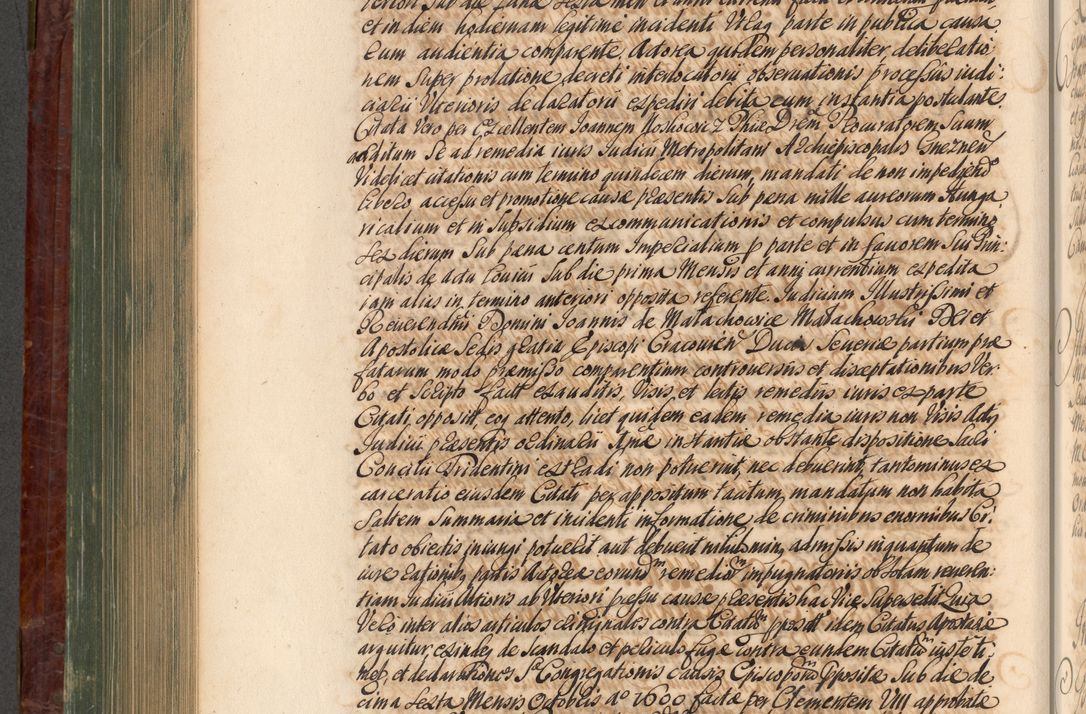 et in diem hodiernam legitime incidenti Vtraq parte in publica causa
rum audientia comparente, Actorea quidem personaliter deliberatio
nem super prolatione decreti interlocutorii observationis processus iudi:
ciarii Vlterioris declaratorii expediri debita cum instantia postulante,
Citata Vero per Excellentem Joannem Procuratorem Suum
additum Se ad remedia iuris Judicii Metropolitani Archiepiscopalis Gneznen
Videlicet citationis cum termino quindecem dierum, mandati de non impediendo
libero accessu et promotione causæ præsentis sub pena mille aureorum Hunga
ricalium et in subsidium excommunicationis et compulsus cum termino
sex dierum sub pæna centum Imperialium p parte et in favorem Sui Prin:
cipalis de actu Sub die prima Mensis et anni currentium expedita
iam alias in termino anteriori opposita referente. Judicium Illustrissimi et
Reverendissimi Domini Joannis de Małachowice Małachowski Dei et
Apostolicæ Sedis gratia Episcopi Cracovien Ducis Severiæ partium præ
fatarum modo præmisso comparentium controversiis et disceptationibus Ver
bo et Scripto exauditis, Visis, et lectis remediis iuris ex parte
Citati, opposit, eoq attento, licet quidem eadem remedia iuris non Visis Actis
Judicii præsentis ordinarii instantiæ obstante dispositione Sacri
Concilii Tridentini extradi non potuerint, nec debuerint, tantominus ex
carceratio eiusdem Citati per appositum tacitum, mandatum non habita
saltem summaria et incidenti informatione, de criminibus enormibus Ci:
tato obiectis iniungi potuerit aut debuerit nihilominus, admissis inquantum de
iure rationibus partis Actoreæ eorund remedior impugnatoriis ob solam reveren:
tiam Judicii ab Vlteriori præssu causæ præsentis hac Vice Supersedit Quia
Vero inter alios articulos criminales contra Citatum pposit idem Citatus Apostasie
arguitur exindeq de scandalo et periculo fugæ contra eundem Citatum iuste ti:
met, et declarationes Sæ Congregationis Episcoporum pposita sub die de
cima sexta Mensis Octobris aº 1600 facta per Clementem VIII approbate